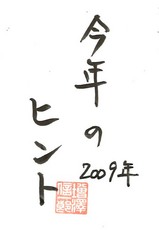 今年の
ヒント
2009年